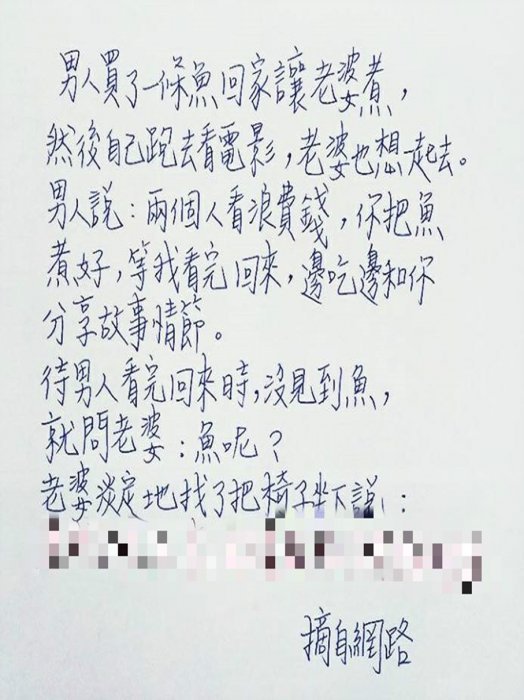 男人買了一條魚回家讓老婆煮，
然後自己跑去看電影，老婆也想一起去。
男人說：兩個人看浪費錢，你把魚
煮好，等我看完回來，邊吃邊和你
分享故事情節。
待男人看完回來時，沒見到魚，
就問老婆：魚呢？
老婆淡定地找了把椅子坐下說：
摘自網路